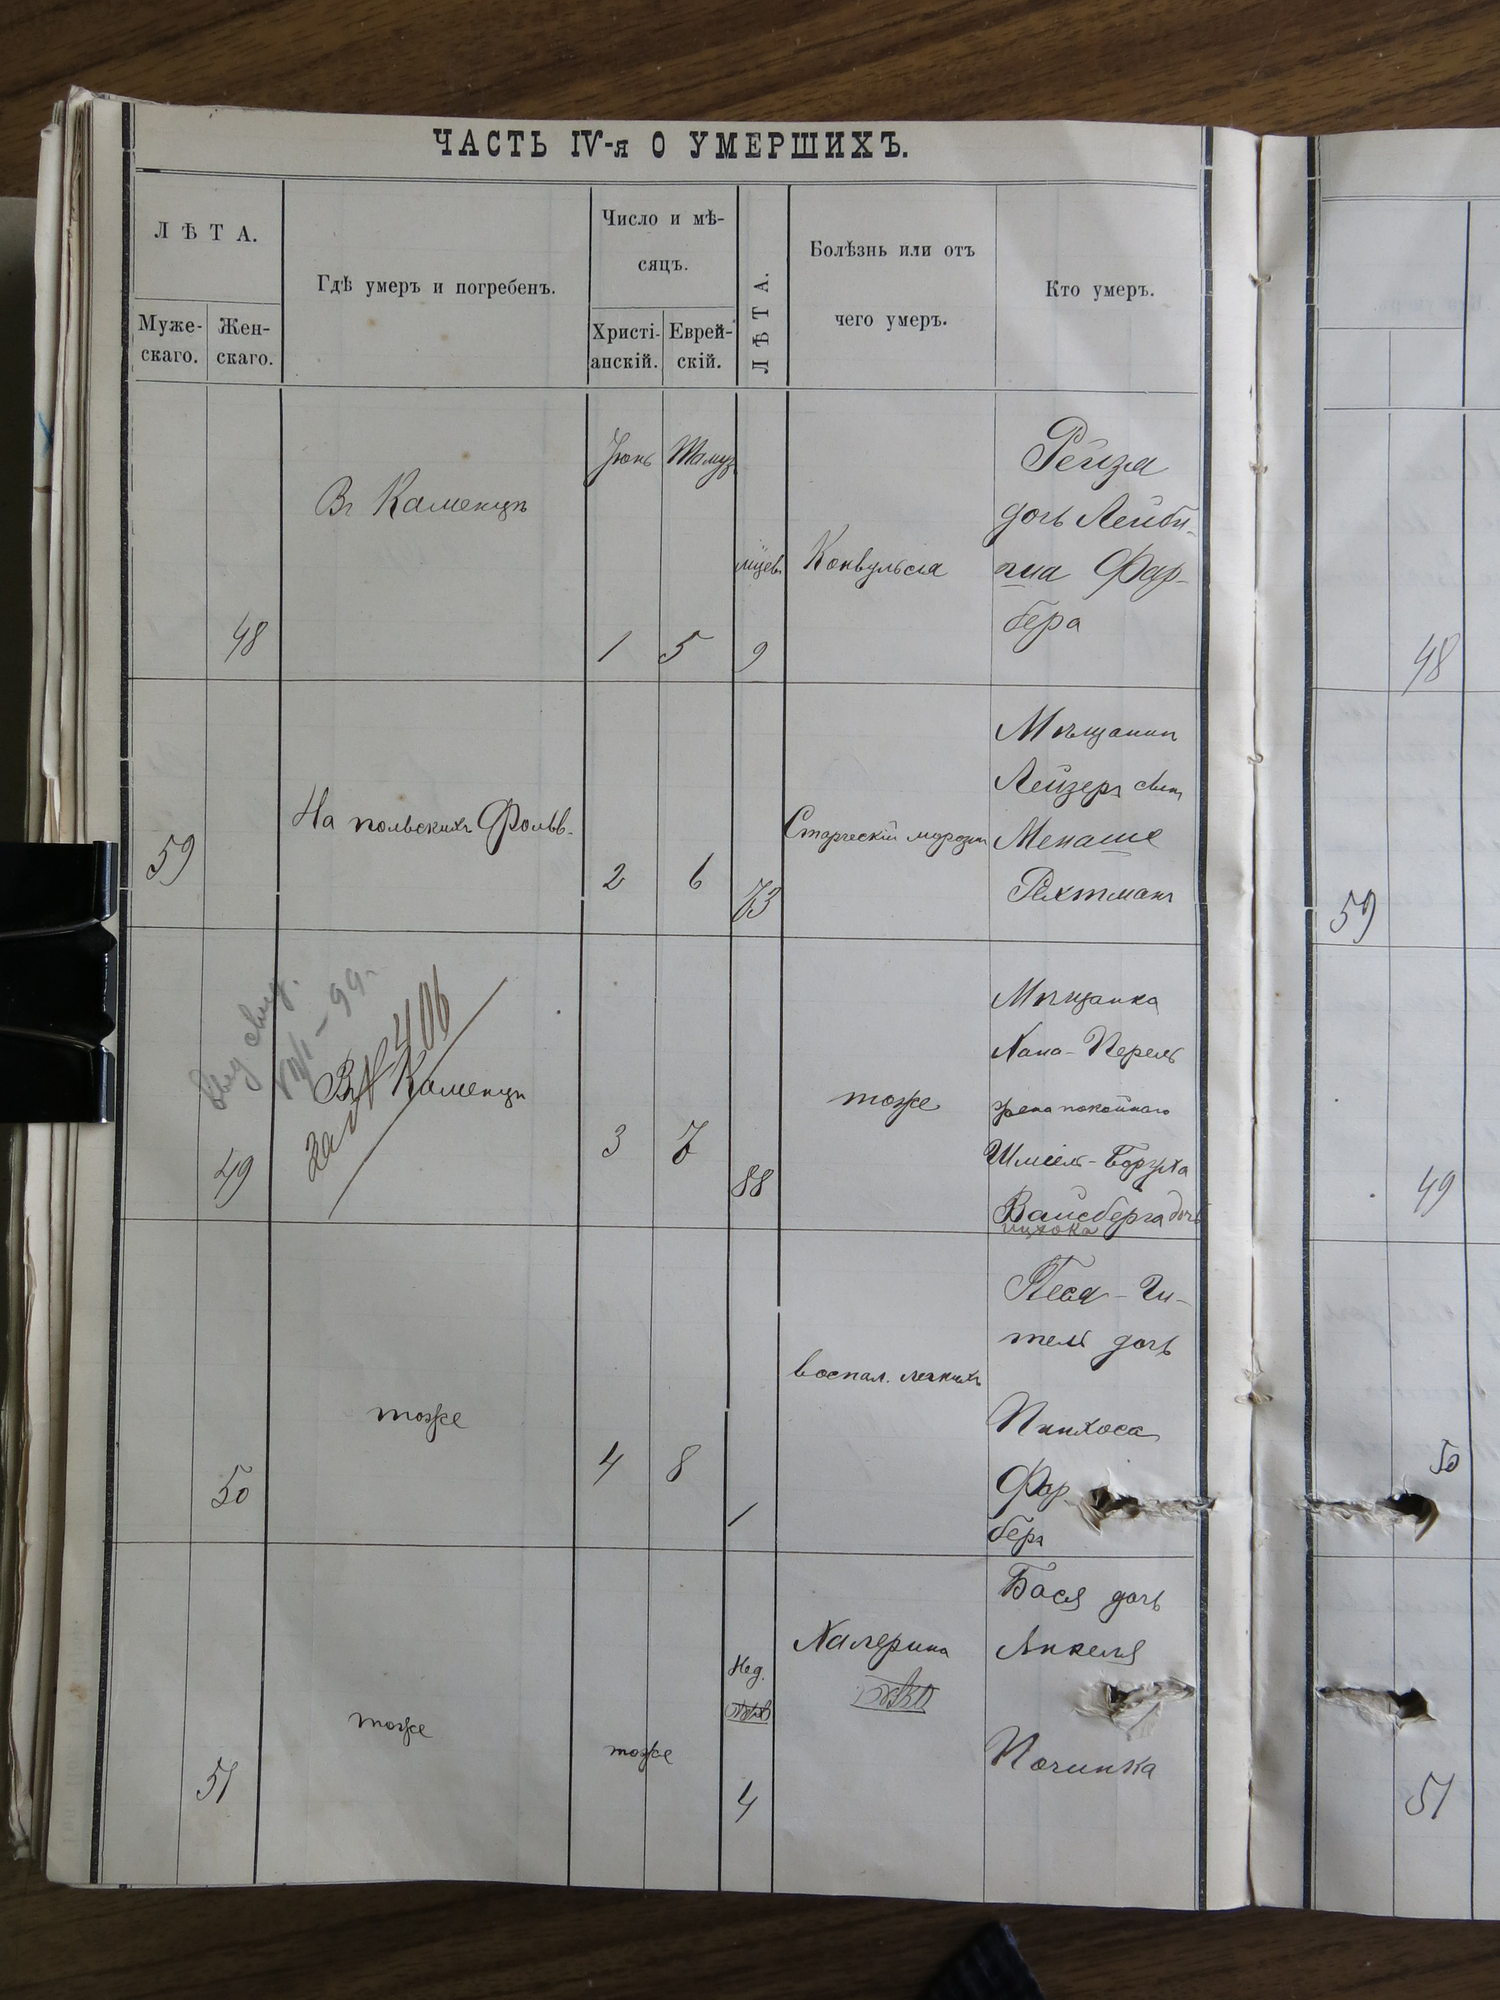 ЧАСТЬ IV-я О УМЕРШИХЪ.
ЛѢТА.
Муже-
скаго.
Жен-
скаго.
Гдѣ умеръ и погребенъ.
Число и мѣ-
сяцъ.
Христі-
анскій.
Еврей-
скій.
ЛѢТА.
Болѣзнь или отъ
чего умеръ.
Кто умеръ.
48
Въ Каменцѣ
Іюнь
1
Тамуз
5
мѣсев
9
Конвульсія
Рейзя
дочь Лейби-
Фар-
бера
48
59
На польскихъ Фольв.
2
6
73
Старческій маразмъ
Мѣщанинъ
Лейзеръ сынъ
Менаше
Рехтманъ
59
49
Выд свид.
VIII – 99 г
за № 406
Въ Каменцѣ
3
7
88
тоже
Мѣщанка
Хана-Перель
жена покойнаго
Шміель-Боруха
Вайсберга дочь
Ицхока
49
50
тоже
4
8
1
воспал. легкихъ
Песя-Ги-
тель дочь
Пинхоса
Фар
бера
50
51
тоже
тоже
Нед.
4
Халерина
Бася дочь
Янкеля
Починка
51